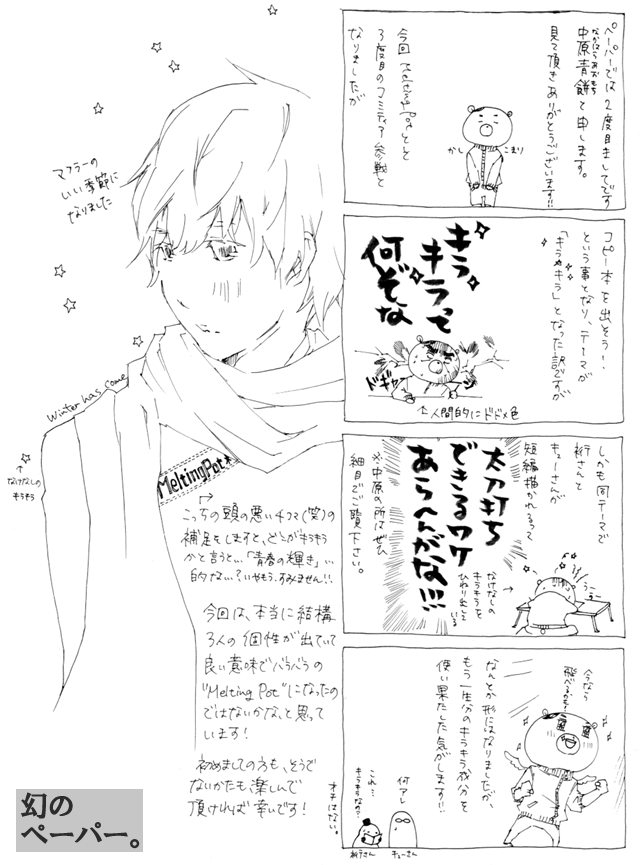 ペーパーでは2度目ましてです
中原青餅と申します。
なかはらあおもち
見て頂きありがとうございます!!
今回MeltingPotとして
3度目のコミティア参戦と
なりましたが
かし
こまり
コピー本を出そう!
という事となり、テーマが
「キラキラ」となった訳ですが
キラ
キラって
何ぞな
ドギャ
↑人間的にドドメ色
しかも同テーマで
裄さんと
チューさんが
短編描かれるって
太刀打ち
できるワケ
あらへんがな!!!
※中原の所はぜひ
細目でご覧下さい。
なけなしの
キラキラを
ひねり出して
いる
うー
なんとか形にはなりましたが、
もう一生分のキラキラ成分を
使い果たした気がします!!
今なら
飛べるかも!
何アレ
これ…
キラキラなの?
裄さん
チューさん
オチはない。
マフラーの
いい季節に
なりました
Winter has come
↑
なけなしの
キラキラ
MeltingPot*
こっちの頭の悪い4コマ(笑)の
補足をしますと、どこがキラキラ
かと言うと…「青春の輝き」…
的な…?いやもう、すみません!!
今回は、本当に結構
3人の個性が出ていて
良い意味でバラバラの
"Melting Pot"になったの
ではないかな、と思って
います!
初めましての方も、そうで
ないかたも、楽しんで
頂ければ幸いです!
幻の
ペーパー。